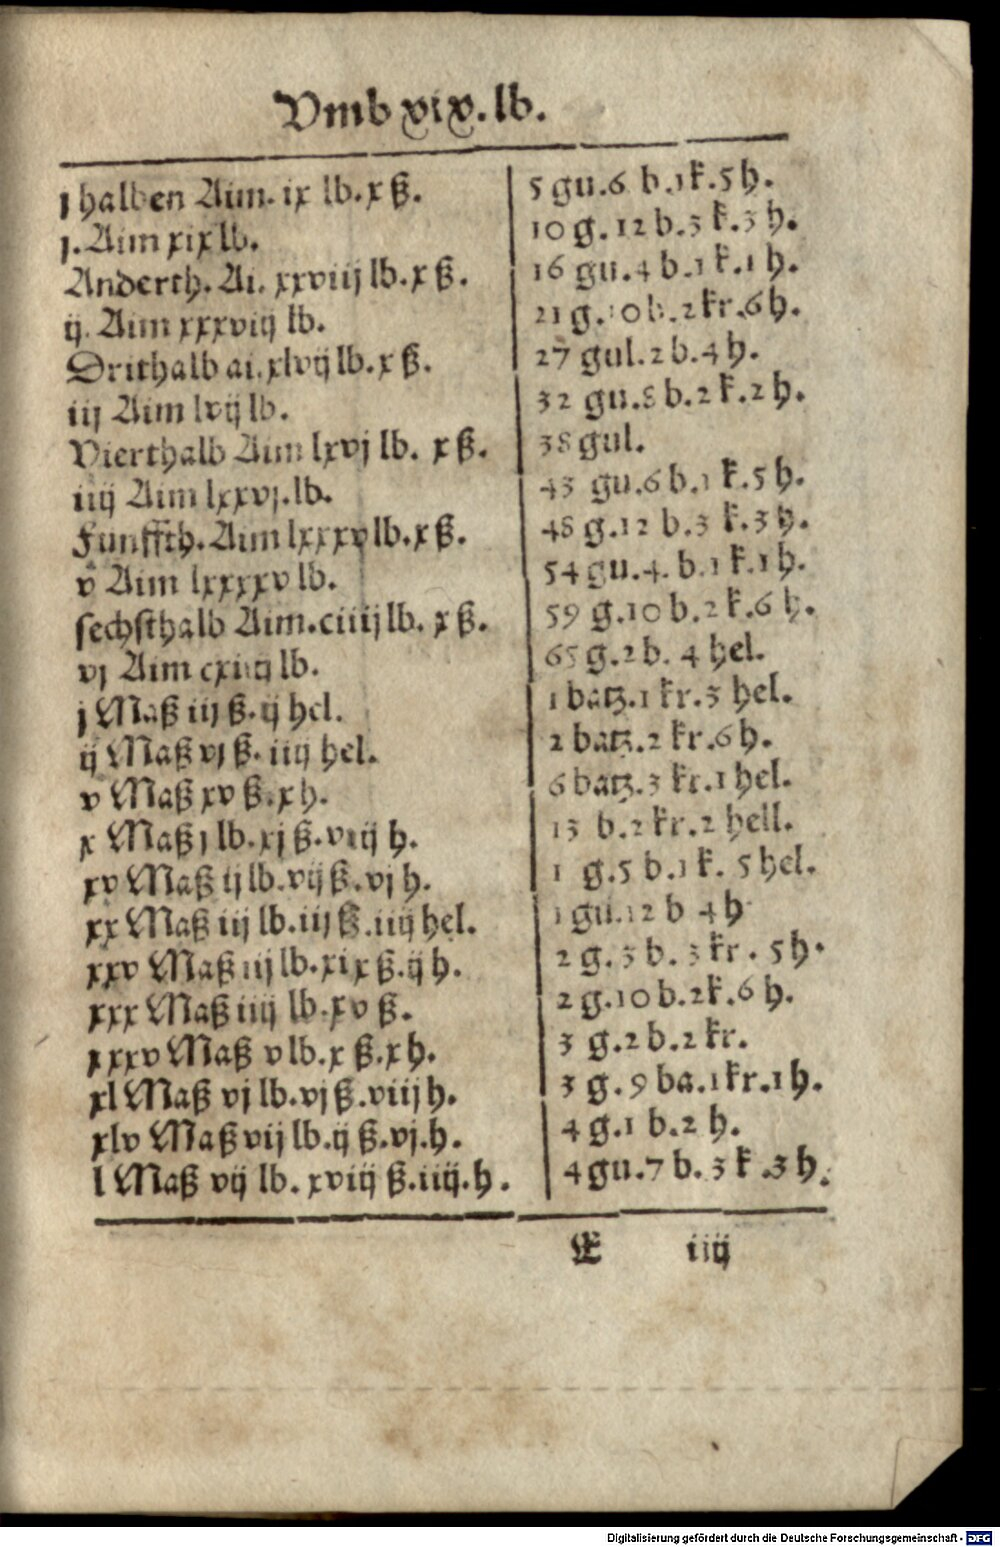 Vmb xix. lb.
j halben Aim. ix lb. x ß. 5 gu. 6 b. 1 k. 5 h.
j. Aim xix lb. 10 g. 12 b. 3 k. 3 h.
Anderth. Ai. xxviij lb. x ß. 16 gu. 4 b. 1 k. 1 h.
ij. Aim xxxviij lb. 21 g. 10 b. 2 kr. 6 h.
Drithalb ai. xlvij lb. x ß. 27 gul. 2 b. 4 h.
iij Aim lvij lb. 32 gu. 8 b. 2 k. 2 h.
Vierthalb Aim lxvj lb. x ß. 38 gul.
iiij Aim lxxvj. lb. 43 gu. 6 b. 1 k. 5 h.
Funffth. Aim lxxxv lb. x ß. 48 g. 12 b. 3 k. 3 h.
v Aim lxxxxv lb. 54 gu. 4. b. 1 k. 1 h.
sechsthalb Aim. ciiij lb. x ß. 59 g. 10 b. 2 k. 6 h.
vj Aim cxiiij lb. 65 g. 2 b. 4 hel.
j Maß iij ß. ij hel. 1 batz. 1 kr. 3 hel.
ij Maß vj ß. iiij hel. 2 batz. 2 kr. 6 h.
v Maß xv ß. x h. 6 batz. 3 kr. 1 hel.
x Maß j lb. xj ß. viij h. 13 b. 2 kr. 2 hell.
xv Maß ij lb. vij ß. vj h. 1 g. 5 b. 1 k. 5 hel.
xx Maß iij lb. iij ß. iiij hel. 1 gu. 12 b 4 h
xxv Maß iij lb. xix ß. ij h. 2 g. 3 b. 3 kr. 5 h.
xxx Maß iiij lb. xv ß. 2 g. 10 b. 2 k. 6 h.
xxxv Maß v lb. x ß. x h. 3 g. 2 b. 2 kr.
xl Maß vj lb. vj ß. viij h. 3 g. 9 ba. 1 kr. 1 h.
xlv Maß vij lb. ij ß. vj. h. 4 g. 1 b. 2 h.
l Maß vij lb. xviij ß. iiij. h. 4 gu. 7 b. 3 k. 3 h.
E iiij
Digitalisierung gefördert durch die Deutsche Forschungsgemeinschaft - DFG